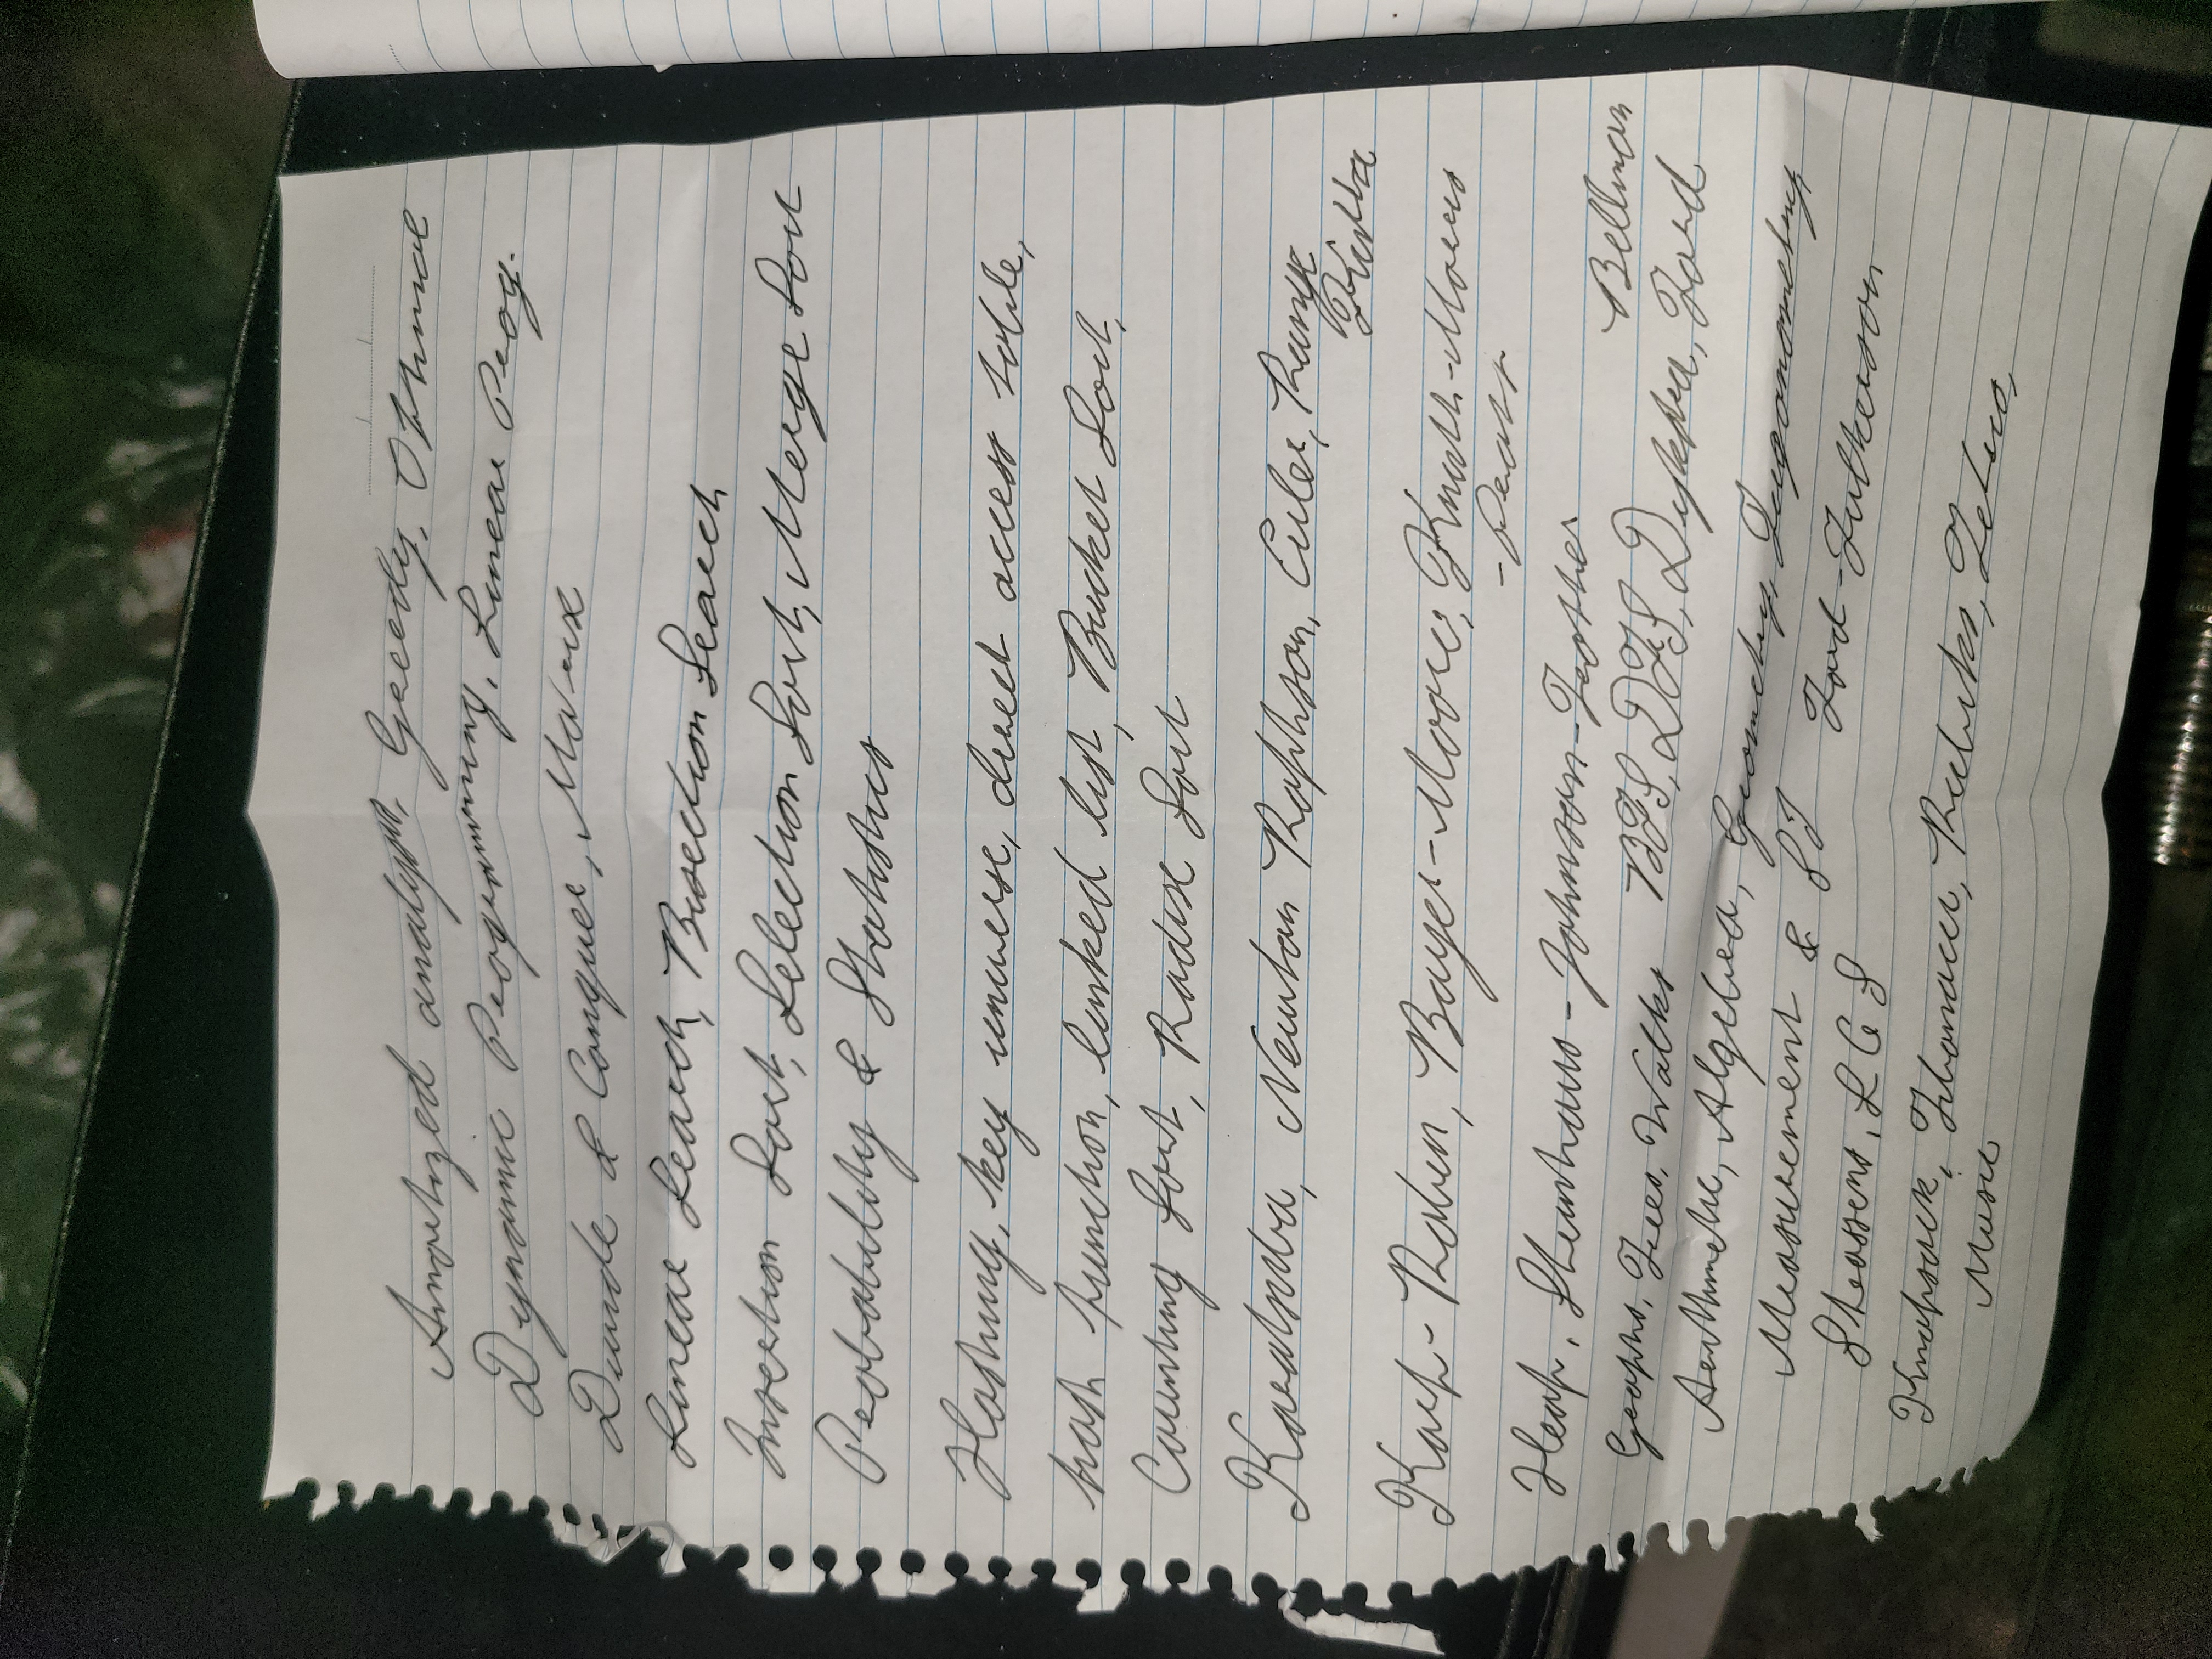 Amortized analysis, Greedy, Optimal
Dynamic Programming, Linear Prog.
Divide & Conquer, Matrix
Linear Search, Bisection Search
Insertion Sort, Selection Sort, Merge Sort
Probability & Statistics
Hashing, key universe, direct access table,
hash function, linked list, Bucket Sort,
Counting Sort, Radix Sort
Karatsuba, Newton Raphson, Euler, Runge
Kutta
Karp-Rabin, Boyer-Moore, Knuth-Morris
-Pratt
Heap, Steinhaus-Johnson-Trotter
Bellman
Graphs, Trees, Walks BFS, DFS, Dijkstra, Ford
Arithmetic, Algebra, Geometry, Trigonometry,
Measurement & ST Ford-Fulkerson
Strassens, LCS
Knapsack, Fibonacci, Rubiks, Tetris,
Music